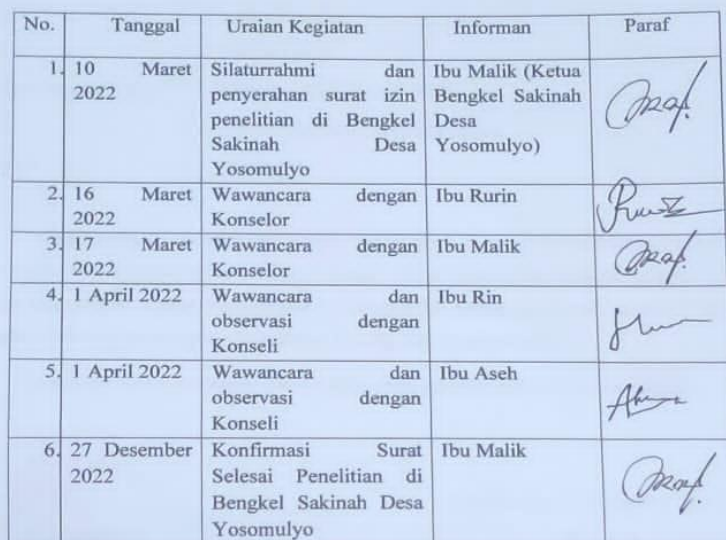 No. Tanggal Uraian Kegiatan Informan Paraf
1. 10 Maret 2022 Silaturrahmi dan penyerahan surat izin penelitian di Bengkel Sakinah Desa Yosomulyo Ibu Malik (Ketua Bengkel Sakinah Desa Yosomulyo)
2. 16 Maret 2022 Wawancara dengan Konselor Ibu Rurin
3. 17 Maret 2022 Wawancara dengan Konselor Ibu Malik
4. 1 April 2022 Wawancara dan observasi dengan Konseli Ibu Rin
5. 1 April 2022 Wawancara dan observasi dengan Konseli Ibu Aseh
6. 27 Desember 2022 Konfirmasi Surat Selesai Penelitian di Bengkel Sakinah Desa Yosomulyo Ibu Malik